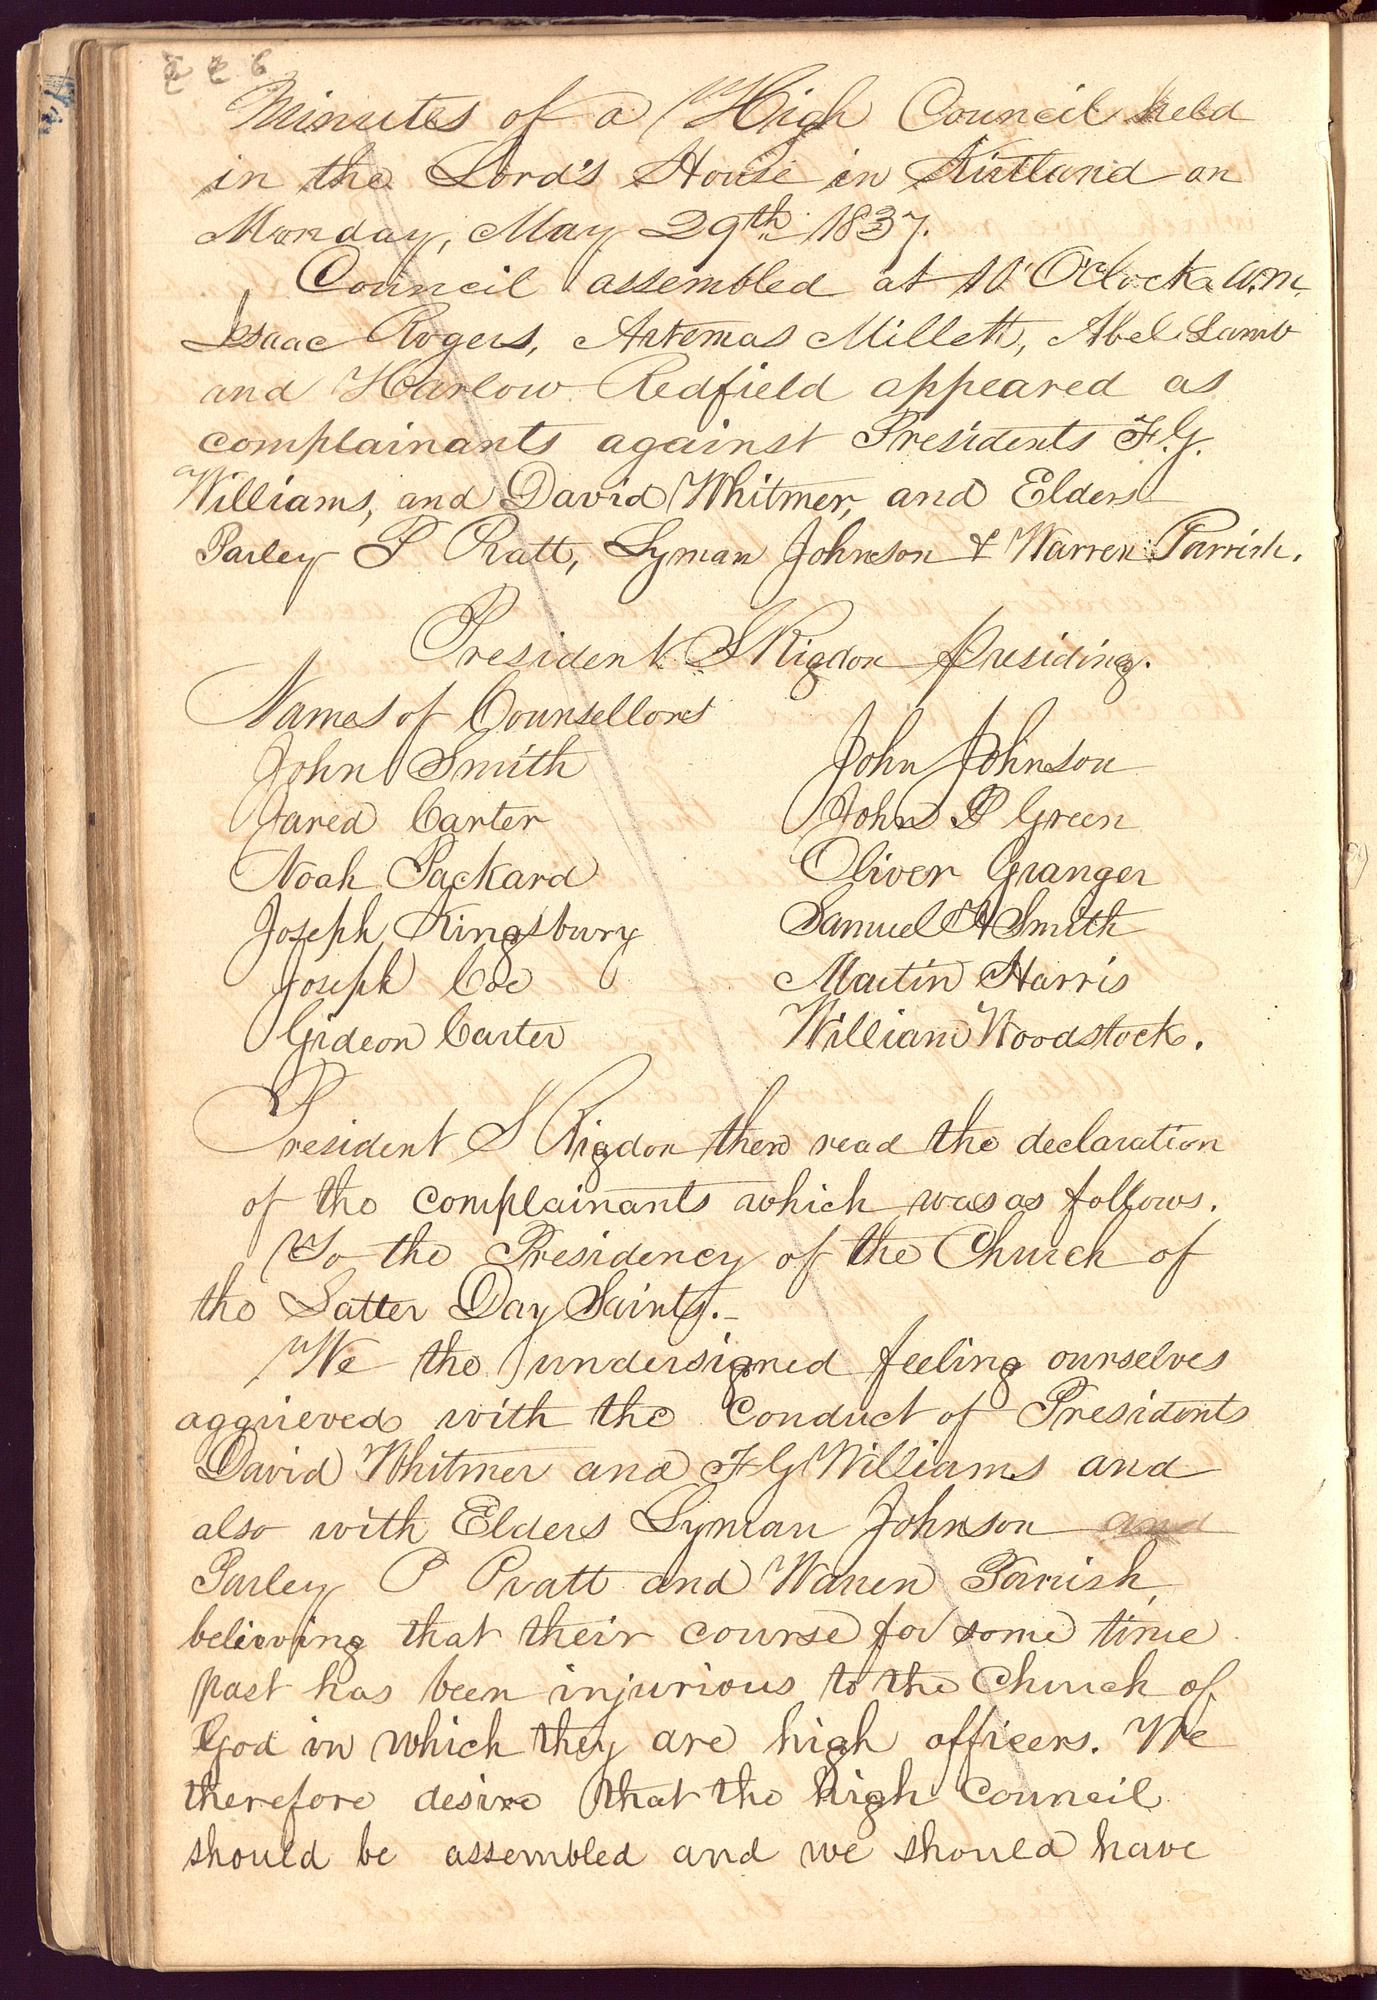 226
Minutes of a High Council held
in the Lord's House in Kirtland on
Monday, May 29th 1837.
Council assembled at 10 O'Clock A.M.
Isaac Rogers, Artemas Millett, Abel Lamb
and Harlow Redfield appeared as
complainants against Presidents F.G.
Williams, and David Whitmer, and Elders
Parley P Pratt, Lyman Johnson & Warren Parrish.
President S Rigdon presiding.
Names of Counsellors
John Smith John Johnson
Jared Carter John P Green
Noah Packard Oliver Granger
Joseph Kingsbury Samuel H Smith
Joseph Coe Martin Harris
Gideon Carter William Woodstock.
President S Rigdon then read the declaration
of the complainants which was as follows.
To the Presidency of the Church of
the Latter Day Saints.-
We the undersigned feeling ourselves
aggrieved with the conduct of Presidents
David Whitmer and F G Williams and
also with Elders Lyman Johnson and
Parley P Pratt and Warren Parrish,
believing that their course for some time
past has been injurious to the Church of
God in which they are high officers. We
therefore desire that the high Council
should be assembled and we should have